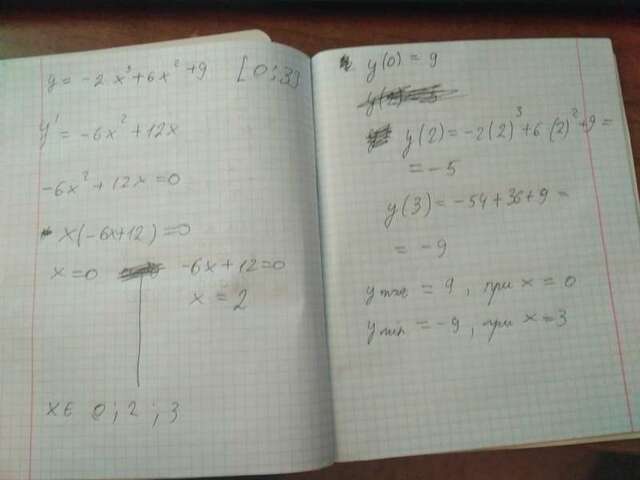 y = -2x³+6x²+9 [0;3]
y' = -6x²+12x
-6x²+12x=0
x(-6x+12)=0
x=0 -6x+12=0
x = 2
x∈ 0; 2; 3
y(0) = 9
y(2) = -2(2)³+6(2)²+9 =
= -5
y(3) = -54+36+9 =
= -9
y max = 9, при x = 0
y min = -9, при x=3